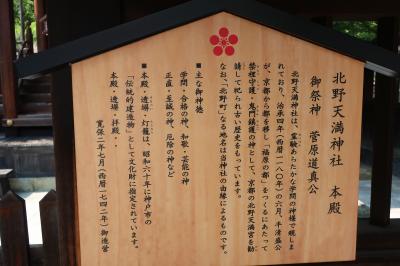 北野天満神社　本殿
御祭神　菅原道真公
北野天満神社は、霊験あらたかな学問の神様で親しま
れており、治承四年（西暦一一八〇年）の六月、平清盛公
が、京都から都を移し「福原の都」をつくるにあたって
禁裡守護・鬼門鎮護の神として、京都の北野天満宮を勧
請して祀られた古い歴史をもっています。
なお、「北野町」なる地名は当神社の由緒によるものです。
■主な御神徳
学問・合格の神、和歌・芸能の神
正直・至誠の神、厄除の神など
■本殿・透塀・灯籠は、昭和六十年に神戸市の
「伝統的建造物」として文化財に指定されています。
本殿・透塀・拝殿‥
寛保二年七月（西暦一七四二年）御造営